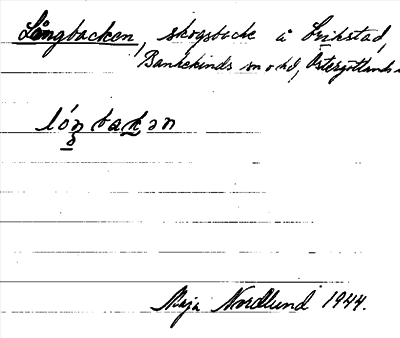 Långbacken, skogsbacke å Erikstad,
Bankekinds sn o hd, Östergötlands
lóŋbakən
Maja Nordlund 1944.